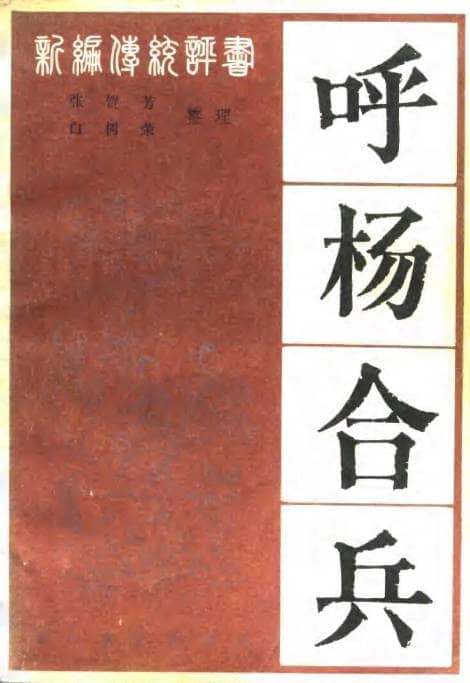 新編傳統評書
张贺芳 整理
白树荣
呼杨合兵